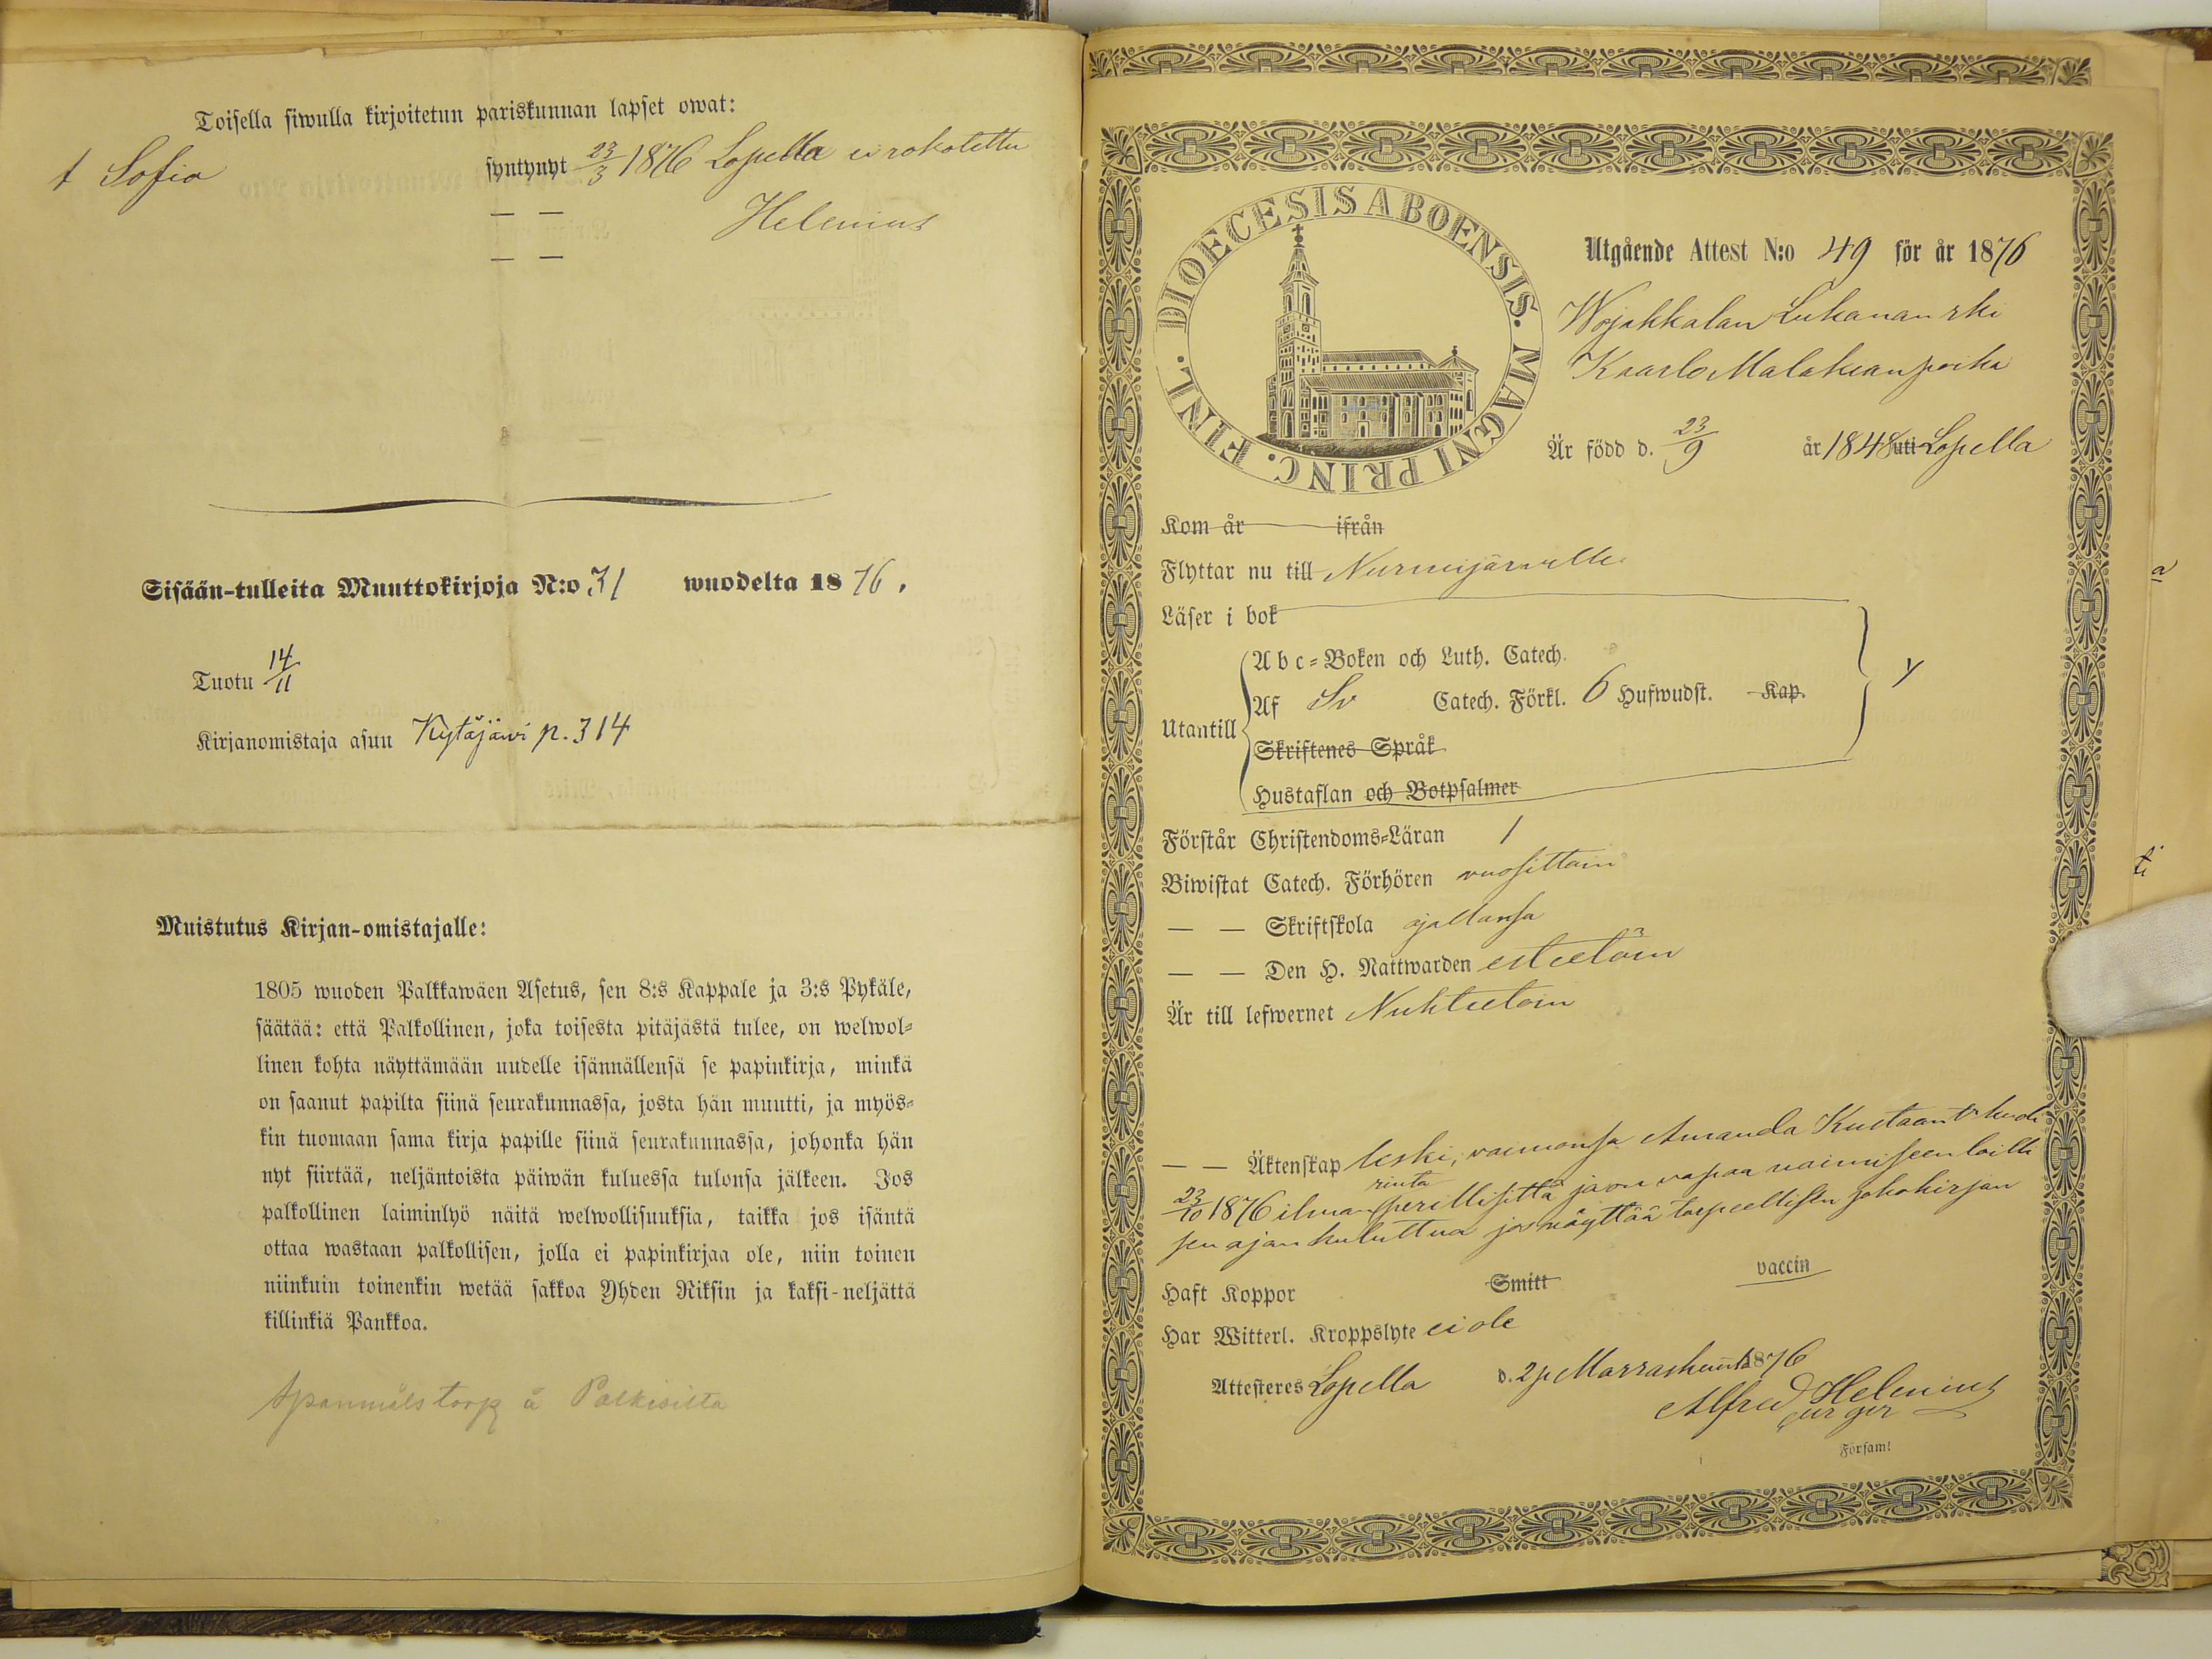 Toisella siwulla kirjoitetun pariskunnan lapset owat:
t Sofia syntynyt 23/3 1876 Lopella ei rokotettu
— — Helenius
— —
Sisään-tulleita Muuttokirjoja N:o 31 wuodelta 1876.
Tuotu 14/11
Kirjanomistaja asuu Kytäjärvi p. 314
Muistutus Kirjan-omistajalle:
1805 wuoden Palkkawäen Asetus, sen 8:s Kappale ja 3:s Pykäle,
säätää: että Palkollinen, joka toisesta pitäjästä tulee, on welwol-
linen kohta näyttämään uudelle isännällensä se papinkirja, minkä
on saanut papilta siinä seurakunnassa, josta hän muutti, ja myös-
kin tuomaan sama kirja papille siinä seurakunnassa, johonka hän
nyt siirtää, neljäntoista päiwän kuluessa tulonsa jälkeen. Jos
palkollinen laiminlyö näitä welwollisuuksia, taikka jos isäntä
ottaa wastaan palkollisen, jolla ei papinkirjaa ole, niin toinen
niinkuin toinenkin wetää sakkoa Yhden Riksin ja kaksi-neljättä
killinkiä Pankkoa.
Spannmåls torp å Palkisilta
DIOECESIS ABOENSIS. MAGNI PRINC. FINL.
Utgående Attest N:o 49 för år 1876
Wojakkalan Lukanan rki
Kaarlo Malakianpoika
Är född d. 23/9 år 1848 uti Lopella
Kom år ifrån
Flyttar nu till Nurmijärvelle
Läser i bok
Abc-Boken och Luth. Catech.
Utantill
Af Sv Catech. Förkl. 6 Hufwudst. Kap.
Skriftenes Språk
Hustaflan och Botpsalmer
Förstår Christendoms-Läran 1
Biwistat Catech. Förhören vuosittain
— — Skriftskola ajallansa
— — Den H. Nattwarden esteetöin
Är till lefwernet Nuhteetoin
— — Äktenskap leski, vaimonsa Amanda Kustaant. kuoli
23/10 1876 ilman rinta perillisittä ja on vapaa naimiseen laill
sen ajan kuluttua jos näyttää tarpeellisen jakokirjan
Haft Koppor Smitt vaccin
Har Witterl. Kroppslyte ei ole
Attesteras Lopella d. 2 p Marraskuuta 1876
Alfred Helenius
Församl